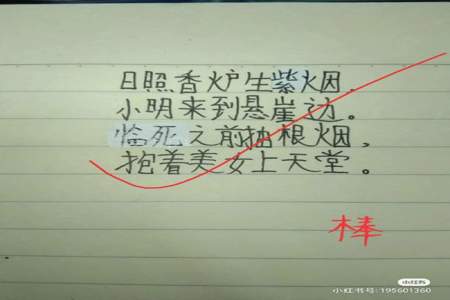 日照香炉生紫烟，
小明来到悬崖边。
临死之前抽根烟，
抱着美女上天堂。
棒
小红书
小红书号：195601360